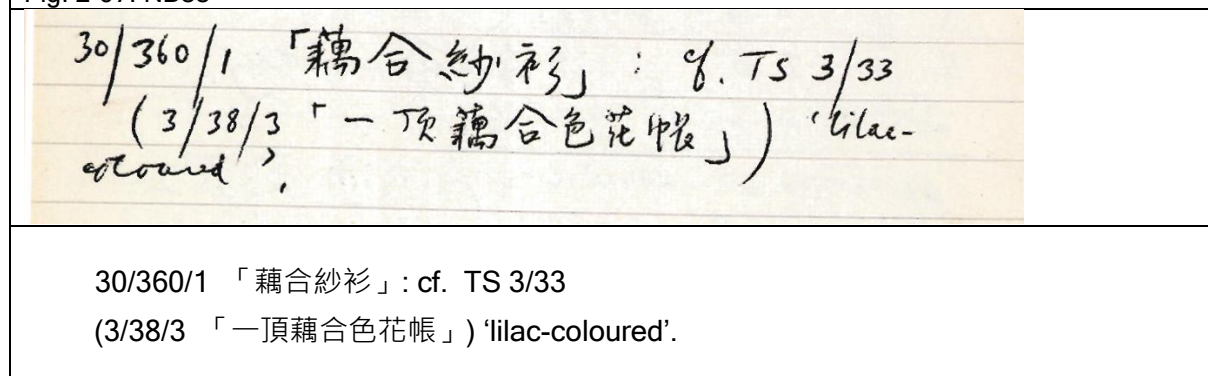 30/360/1 「藕合紗衫」 : cf. TS 3/33
(3/38/3 「一頂藕合色花帳」) 'lilac-
coloured'.
30/360/1 「藕合紗衫」: cf. TS 3/33
(3/38/3 「一頂藕合色花帳」) ‘lilac-coloured’.